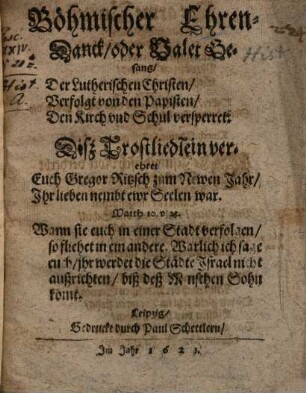 Böhmischer Ehren-
Danck/oder Valet Ge-
sang/
Der Lutherischen Christen/
Verfolgt von den Papisten/
Den Kirch vnd Schul versperret.
Disz Trostliedlein ver-
ehret
Euch Gregor Ritzsch zum Newen Jahr/
Ihr lieben nembt ewr Seelen war.
Matth 10. v 23.
Wann sie euch in einer Stadt verfolgen/
so fliehet in ein andere. Warlich ich sage
euch/jhr werdet die Städte Israel nicht
außrichten/ biß deß Menschen Sohn
kömt.
Leipzig/
Gedruckt durch Paul Schettlern/
Im Jahr 1623.